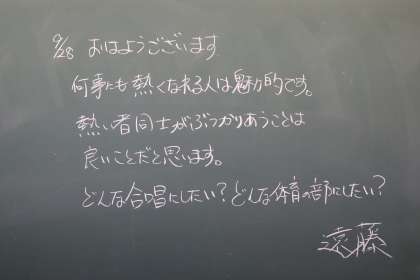 9/28 おはようございます
何事にも熱くなれる人は魅力的です。
熱い者同士がぶつかりあうことは
良いことだと思います。
どんな合唱にしたい?どんな体育の部にしたい?
遠藤